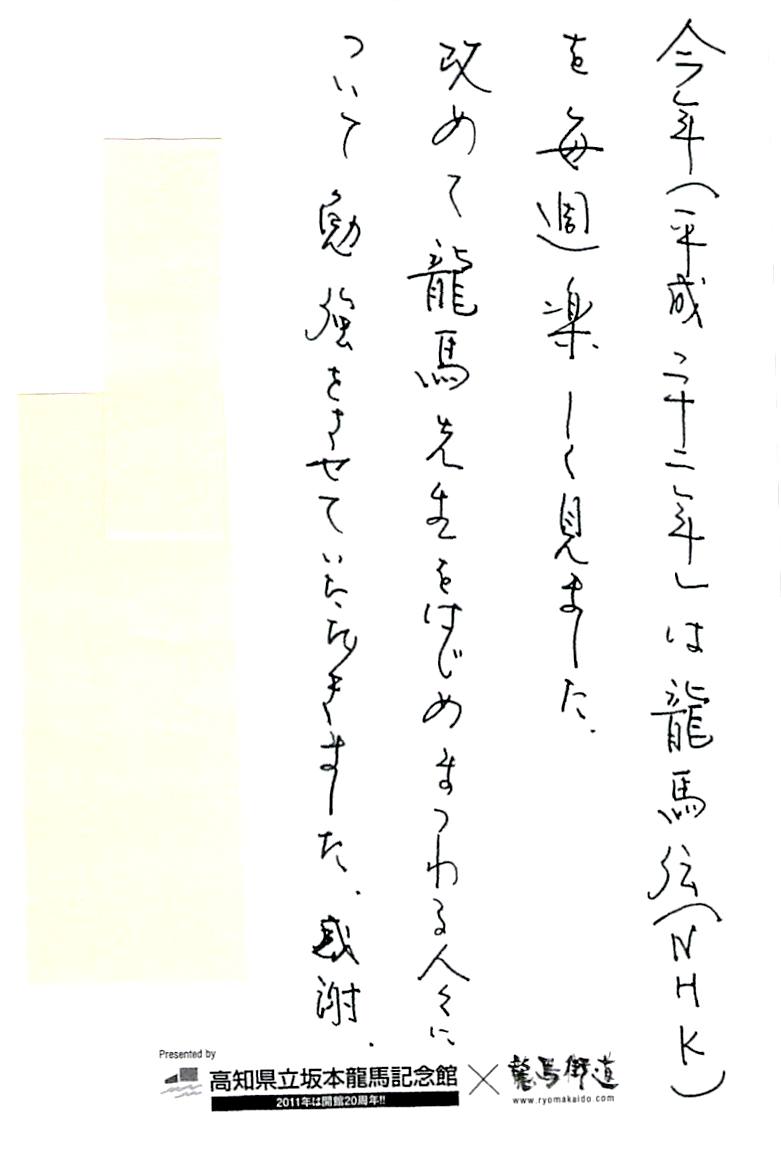 今年(平成二十二年)は龍馬伝(NHK)
を毎週楽しく見ました。
改めて龍馬先生をはじめまつわる人々に
ついて勉強をさせていただきました。感謝。
Presented by
高知県立坂本龍馬記念館×龍馬街道
2011年は開館20周年!!
www.ryomakaido.com